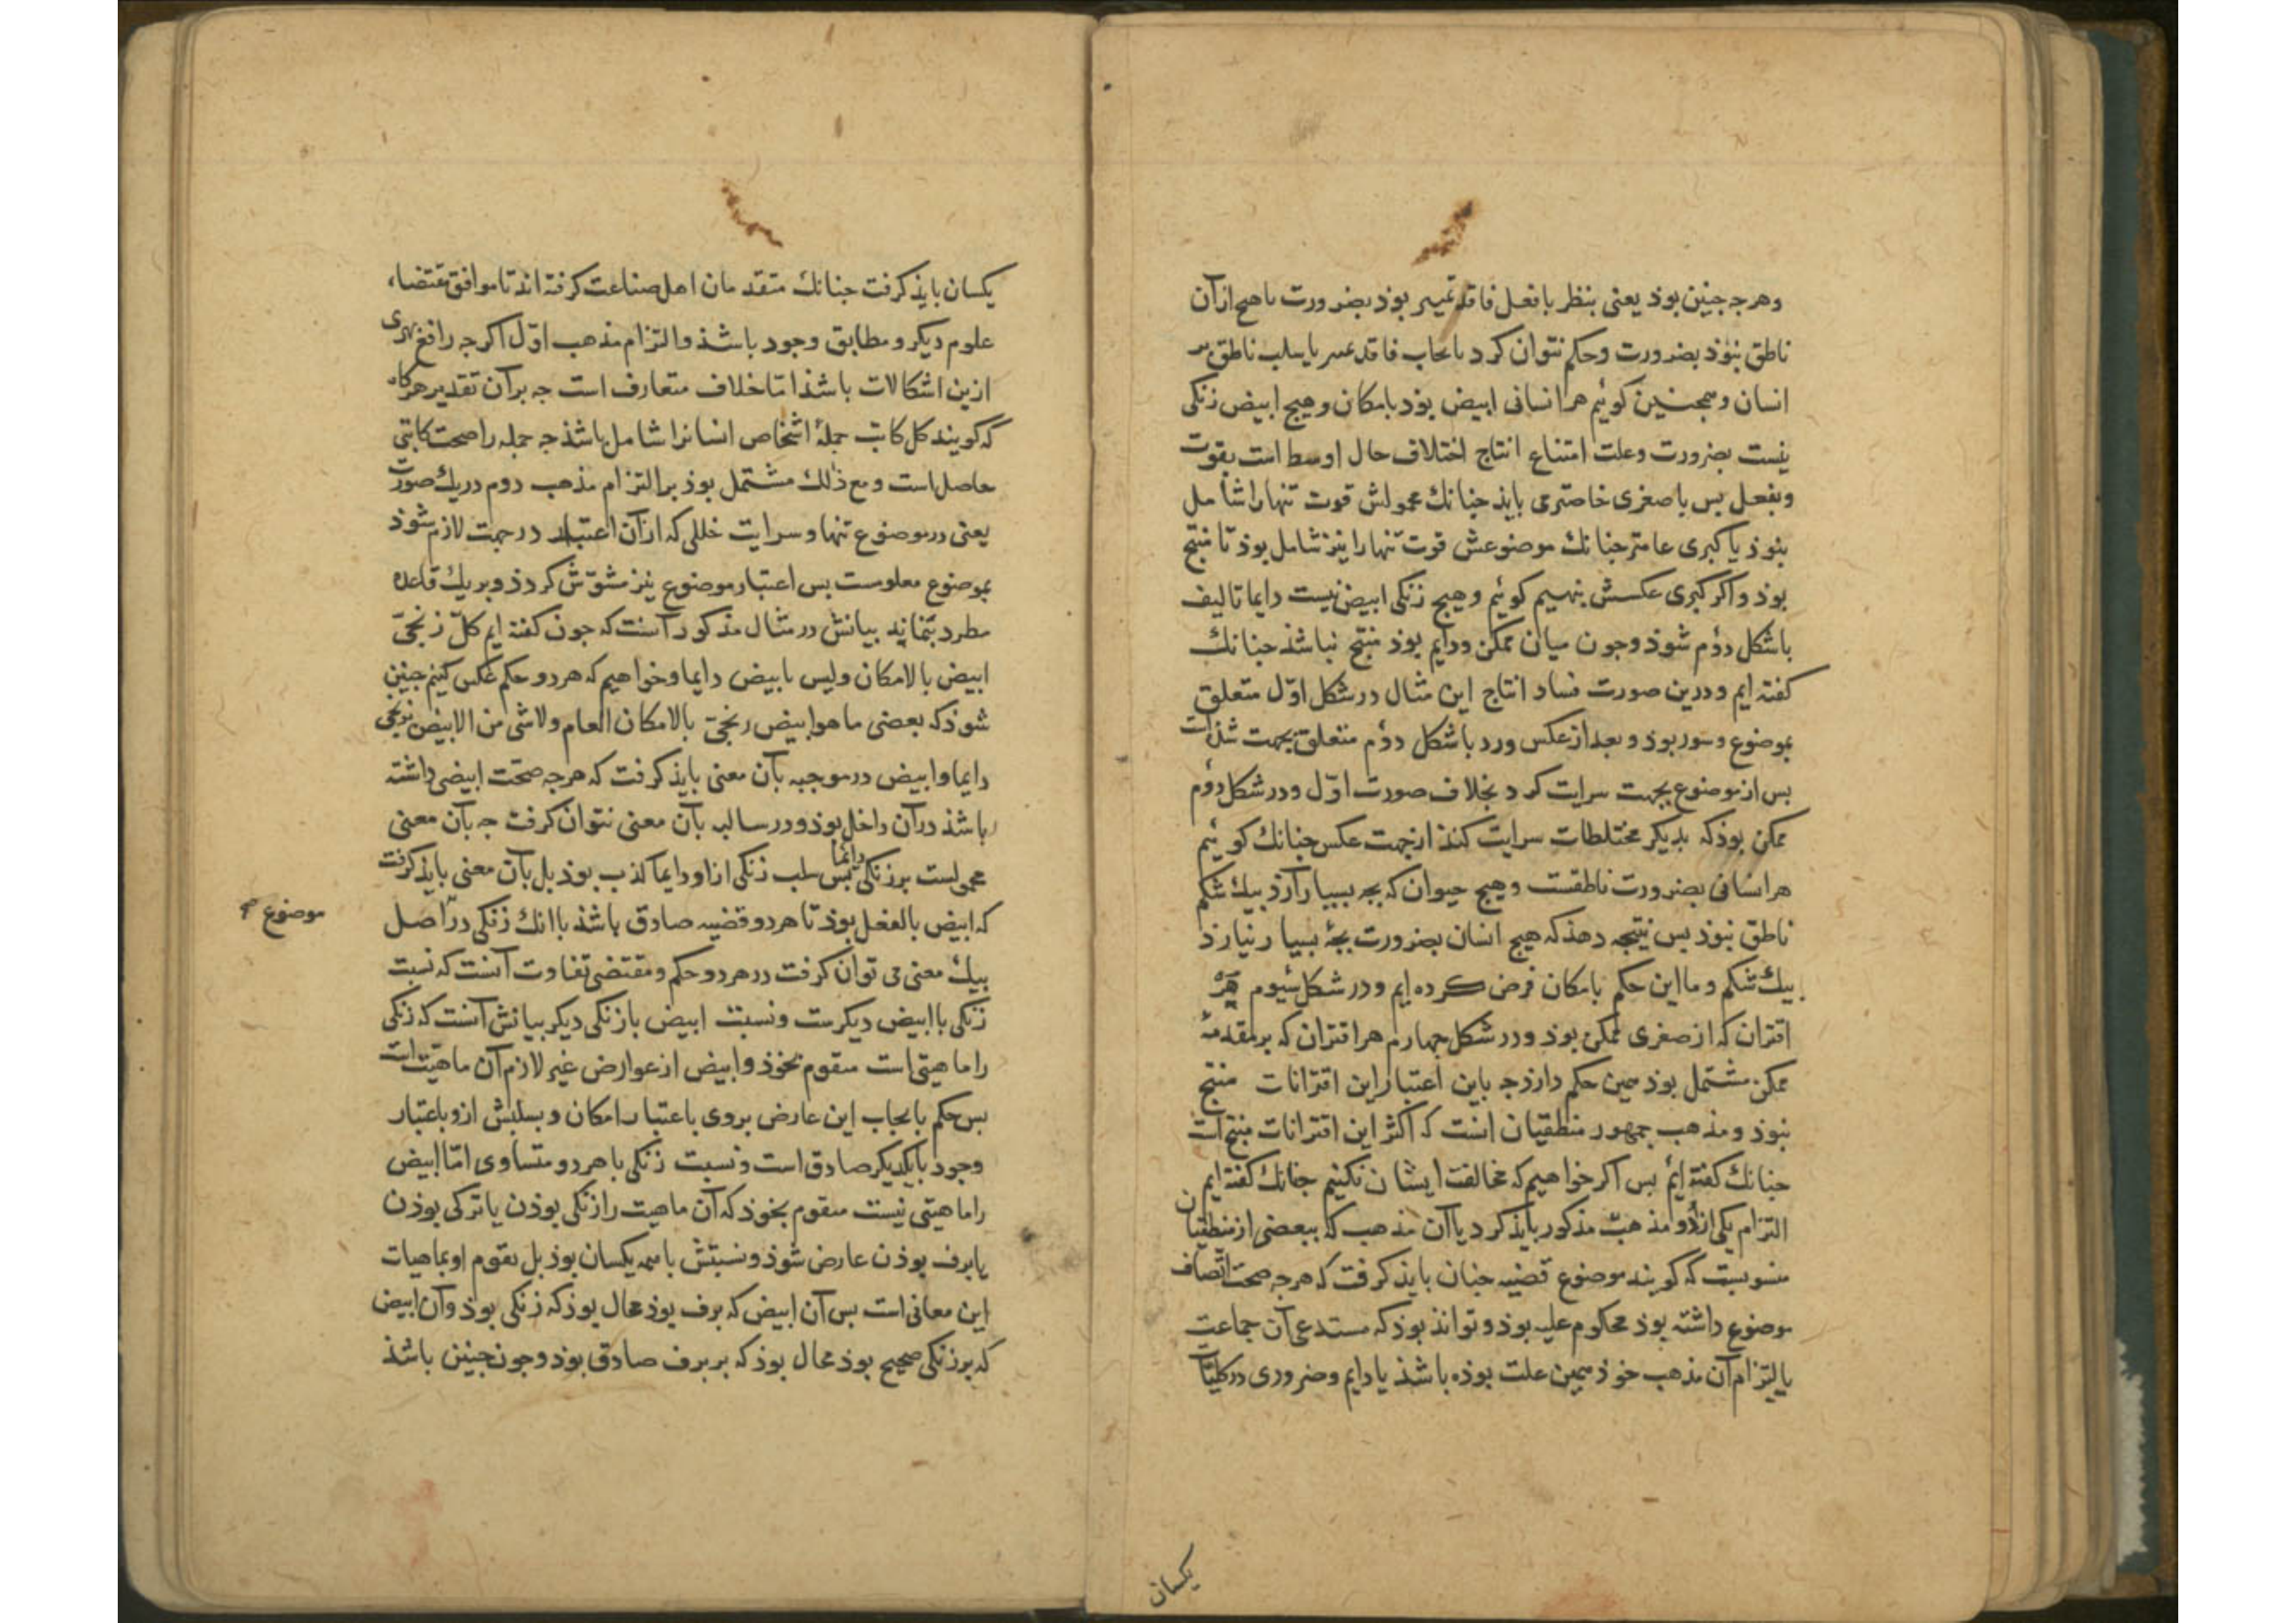 وهرجه جنين بوذ يعنى بنظر با فعل فاقد تميز بوذ بضرورت با هيج ازآن
ناطق نبوذ بضرورت وحكم نتوان كرد بايجاب فاقد تميز يا بسلب ناطق بر
انسان وهمجنين كوئيم هر انسانى ابيض بوذ بامكان وهيج ابيض زنكى
نيست بضرورت وعلت امتناع انتاج اختلاف حال اوسط است بقوت
وبفعل بس يا صغرى خاصتر مى بايذ جنانك محمولش قوت تنها را شامل
نبوذ يا كبرى عامتر جنانك موضوعش قوت تنها را نيز شامل بوذ تا منتج
بوذ واكر كبرى عكسش بنهيم كوئيم وهيج زنكى ابيض نيست دايما تاليف
باشكل دوم شوذ وجون ميان ممكن ودايم بوذ منتج نباشذ جنانك
كفته ايم ودرين صورت فساد انتاج اين مثال در شكل اوّل متعلق
بموضوع وسور بوذ وبعد از عكس ورد باشكل دوم متعلق بجهت شذه است
بس از موضوع بجهت سرايت كرد بخلاف صورت اوّل ودر شكل دوم
ممكن بوذ كه بديكر مختلطات سرايت كند از جهت عكس جنانك كوئيم
هر انسانى بضرورت ناطقست وهيج حيوان كه بجه بسيار آرذ بيك شكم
ناطق نبوذ بس نتيجه دهذ كه هيج انسان بضرورت بجهٔ بسيار نيارذ
بيك شكم وما اين حكم بامكان فرض كرده ايم ودر شكل سيوم هر
اقتران كه از صغرى ممكن بوذ ودر شكل جهارم هر اقتران كه بر مقدمهٔ
ممكن مشتمل بوذ همين حكم دارذ جه باين اعتبار اين اقترانات منتج
نبوذ ومذهب جمهور منطقيان انست كه اكثر اين اقترانات منتج است
جنانك كفته ايم بس اكر خواهيم كه مخالفت ايشان نكنيم جنانك كفته ايم
التزام يكى از دو مذهب مذكور بايذ كرد يا آن مذهب كه ببعضى از منطقيان
منسوبست كه كويند موضوع قضيه جنان بايذ كرفت كه هرجه صحت اتصاف
موضوع داشته بوذ محكوم عليه بوذ وتواند بوذ كه مستدعى آن جماعت
بالتزام آن مذهب خوذ همين علت بوذه باشذ يا دايم وضرورى در كليات
يكسان
يكسان بايذ كرفت جنانك متقدمان اهل صناعت كرفته اند تا موافق مقتضاء
علوم ديكر ومطابق وجود باشذ والتزام مذهب اوّل اكرجه رافع بهرى
ازين اشكالات باشذ امّا خلاف متعارف است جه بر آن تقدير هركاه
كه كويند كل كاتب جملهٔ اشخاص انسانرا شامل باشذ جه جمله را صحت كاتبى
حاصل است ومع ذلك مشتمل بوذ بر التزام مذهب دوم در يك صورت
يعنى در موضوع تنها وسرايت خللى كه از آن اعتبار در جهت لازم شوذ
بموضوع معلومست بس اعتبار موضوع نيز مشوّش كردذ وبر يك قاعده
مطرد بنماند بيانش در مثال مذكور آنست كه جون كفته ايم كلّ زنجىّ
ابيض بالامكان وليس بابيض دايما وخواهيم كه هر دو حكم عكس كنيم جنين
شوذ كه بعضى ما هو ابيض زنجىّ بالامكان العام ولا شى من الابيض بزنجى
دايما وابيض در موجبه بآن معنى بايذ كرفت كه هرجه صحّت ابيضى داشته
باشذ در آن داخل بوذ ودر سالبه بآن معنى نتوان كرفت جه بآن معنى
محمولست بر زنكى دايما بس سلب زنكى از او دايما كذب بوذ بل بآن معنى بايذ كرفت
كه ابيض بالفعل بوذ تا هر دو قضيه صادق باشذ باانك زنكى در اصل
موضوع صح
بيك معنى مى توان كرفت در هر دو حكم ومقتضى تفاوت آنست كه نسبت
زنكى با ابيض ديكرست ونسبت ابيض با زنكى ديكر بيانش آنست كه زنكى
را ماهيتى است متقوم بخوذ وابيض از عوارض غير لازم آن ماهيّت است
بس حكم بايجاب اين عارض بروى باعتبار امكان وبسلبش ازو باعتبار
وجود بايكديكر صادق است ونسبت زنكى با هر دو متساوى امّا ابيض
را ماهيتى نيست متقوم بخوذ كه آن ماهيت را زنكى بوذن يا تركى بوذن
يا برف بوذن عارض شوذ ونسبتش با همه يكسان بوذ بل تقوم او بماهيات
اين معانى است بس آن ابيض كه برف بوذ محال بوذ كه زنكى بوذ وآن ابيض
كه بر زنكى صحيح بوذ محال بوذ كه بر برف صادق بوذ وجون جنين باشذ